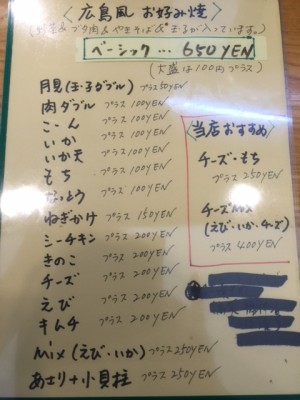 〈広島風 お好み焼〉
ブタ肉&やきそば&玉子が入っています。)
ベーシック… 650YEN
(大盛は100円プラス)
月見(玉子ダブル) プラス50YEN
肉ダブル プラス100YEN
こーん プラス100YEN
いか プラス100YEN
いか天 プラス100YEN
もち プラス100YEN
なっとう プラス100YEN
ねぎかけ プラス150YEN
シーチキン プラス200YEN
きのこ プラス200YEN
チーズ プラス200YEN
えび プラス200YEN
キムチ プラス200YEN
Mix(えび・いか) プラス250YEN
あさり+小貝柱 プラス250YEN
〈当店おすすめ〉
チーズ・もち
プラス250YEN
チーズMix
(えび・いか・チーズ)
プラス400YEN